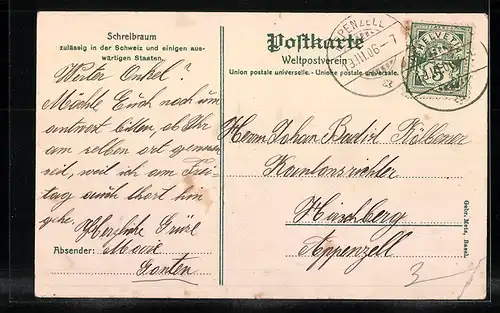 Schreibraum
zulässig in der Schweiz und einigen aus-
wärtigen Staaten.
Postkarte
Weltpostverein
Union postale universelle. - Unione postale universale.
APPENZELL
III.06.-7
HELVETIA
5
Werter Onkel?
Möchte Euch noch um
antwort bitten, ob Ihr
am selben ort gewesen
seid, weil ich am Frei-
tag auch dort hin
gehe.
Herzliche Grüße
Absender: Marie
Gonten
Herrn Johan
Kantonsrichter
Hirschberg
Appenzell
Gebr. Metz, Basel.
3